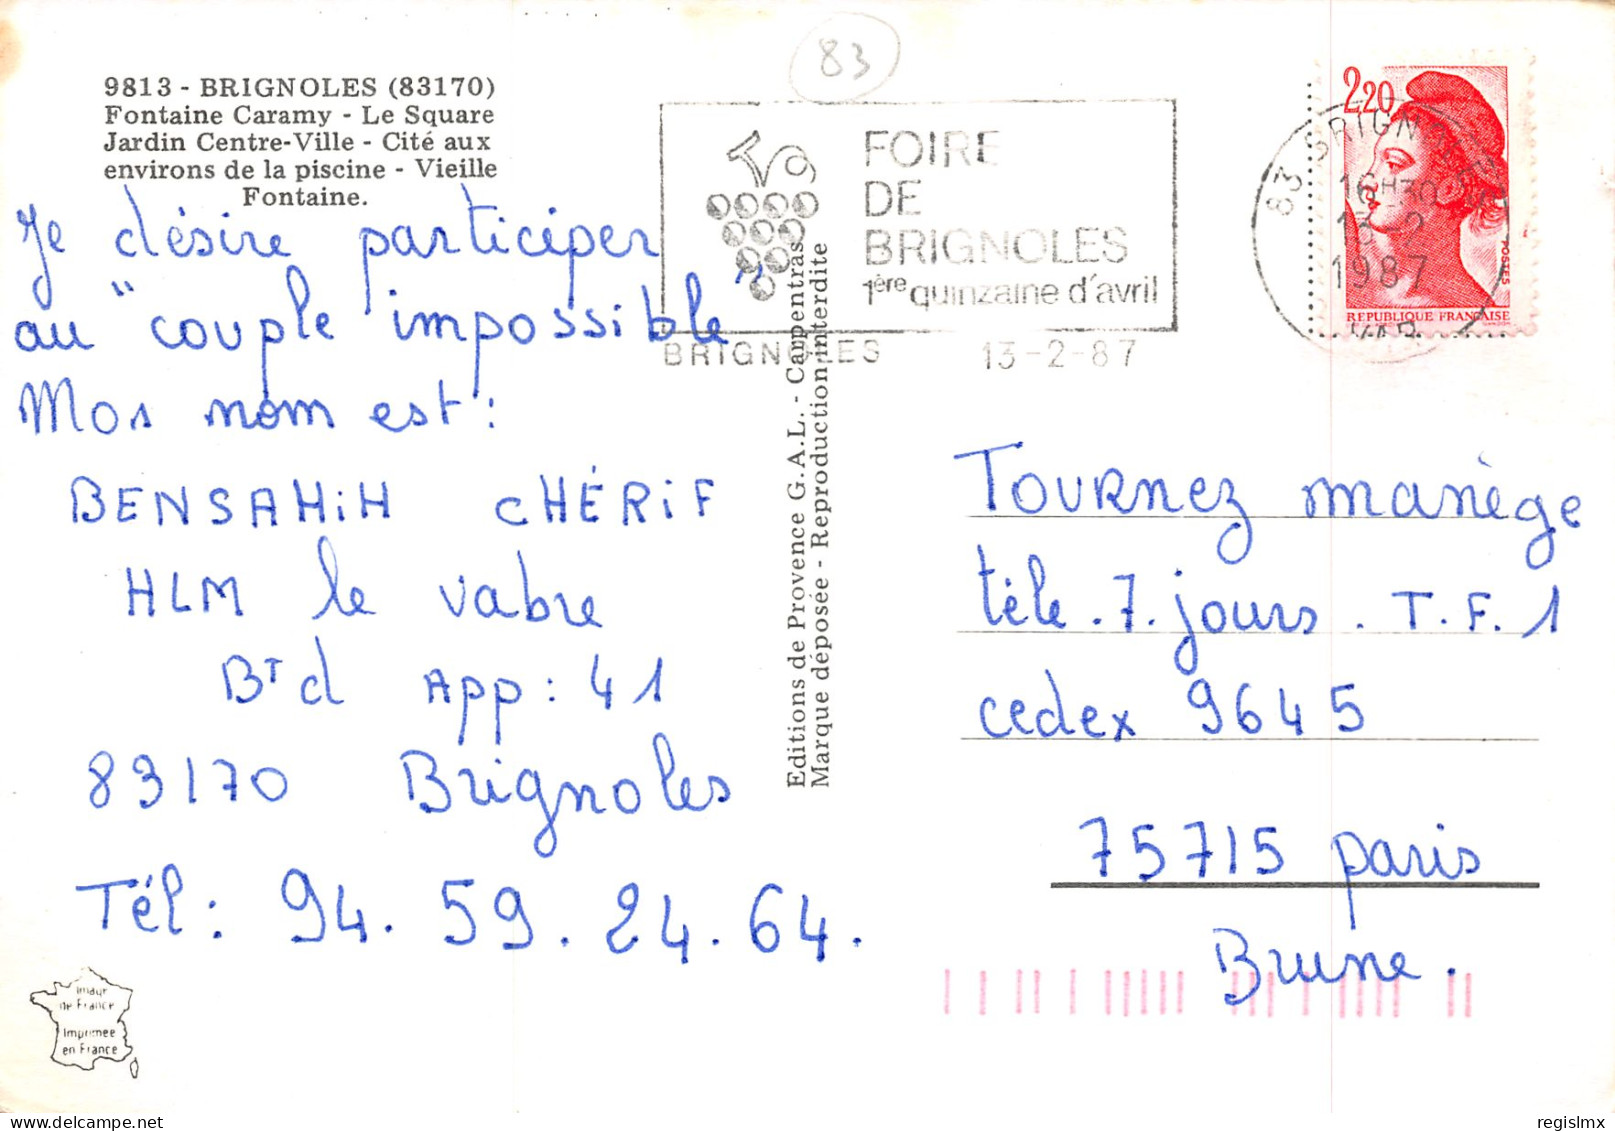 83
9813 - BRIGNOLES (83170)
Fontaine Caramy - Le Square
Jardin Centre-Ville - Cité aux
environs de la piscine - Vieille
Fontaine.
Je désire participer
au "couple impossible"
Mon nom est :
BENSAHiH CHÉRiF
HLM le vabre
BT d App : 41
83170 Brignoles
Tél : 94. 59. 24. 64.
Image
de France
Imprimée
en France
Editions de Provence G.A.L. - Carpentras
Marque déposée - Reproduction interdite
FOIRE
DE
BRIGNOLES
1ère quinzaine d'avril
BRIGNOLES 13-2-87
2,20
POSTES
REPUBLIQUE FRANÇAISE
83 BRIGNOLES
16H30
13-2
1987
VAR
Tournez manège
téle. 7. jours. T.F.1
cedex 9645
75715 paris
Brune.
delcampe.net
regislmx